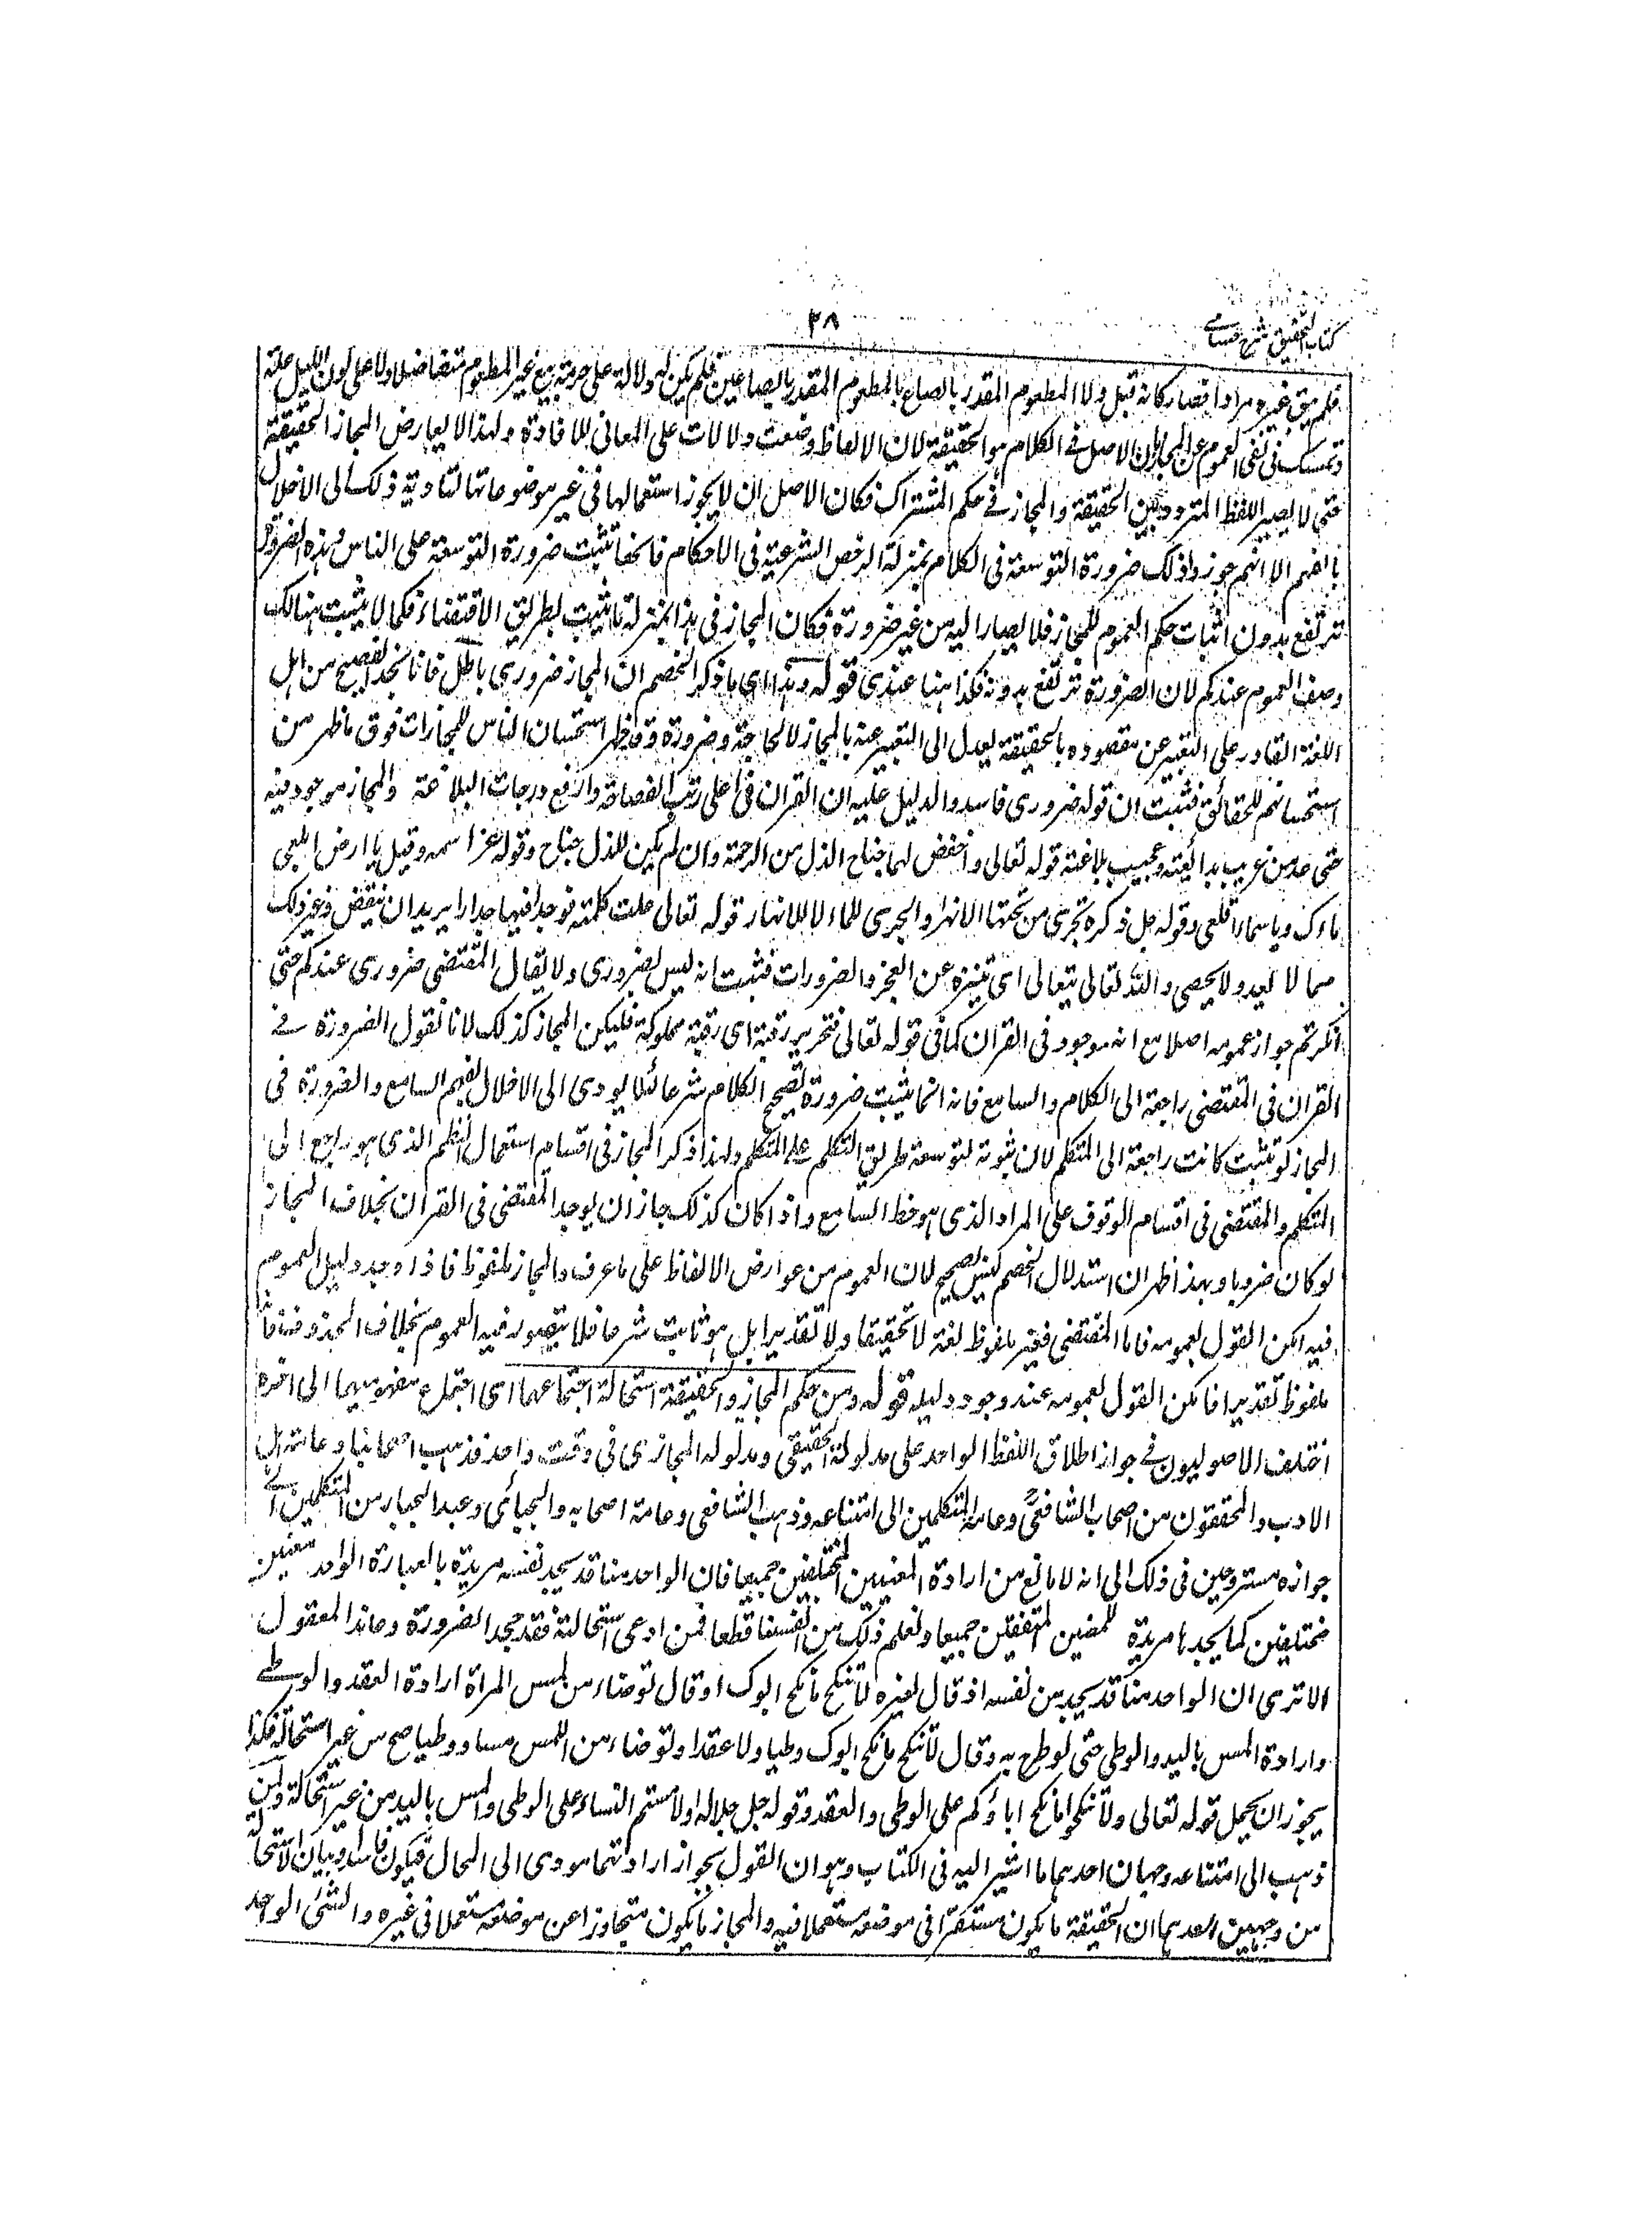 كتاب التحقيق شرح حسامي
٣٨
فلم يبق غيره مرادا فصار كانه قيل ولا المطعوم المقدر بالصاع بالمطعوم المقدر بالصاعين فلم يكن له دلالة على حرمة بيع غير المطعوم متفاضلا ولا على كون الكيل علة
وتمسك في نفي العموم عن المجاز بان الاصل في الكلام هو الحقيقة لان الالفاظ وضعت دلالات على المعاني للافادة ولهذا لا يعارض المجاز الحقيقة
حتى لا يصير اللفظ المتردد بين الحقيقة والمجاز في حكم المشترك فكان الاصل ان لا يجوز استعمالها في غير موضوعاتها لتادية ذلك الى الاخلال
بالفهم الا انهم جوزوا ذلك ضرورة التوسعة في الكلام بمنزلة الرخص الشرعية في الاحكام فانها تثبت ضرورة التوسعة على الناس وهذه الضرورة
ترتفع بدون اثبات حكم العموم للمجاز فلا يصار اليه من غير ضرورة فكان المجاز في هذا بمنزلة ما يثبت بطريق الاقتضاء فكما لا يثبت هنالك
وصف العموم عندكم لان الضرورة ترتفع بدونه فكذا هنا عندي قوله وهذا اي ما ذكر الخصم ان المجاز ضروري باطل فانا نجد الفصيح من اهل
اللغة القادر على التعبير عن مقصوده بالحقيقة يعدل الى التعبير عنه بالمجاز لا لحاجة وضرورة وقد ظهر استحسان الناس للمجازات فوق ما ظهر من
استحسانهم للحقائق فثبت ان قوله ضروري فاسد والدليل عليه ان القران في اعلى رتب الفصاحة وارفع درجات البلاغة والمجاز موجود فيه
حتى عد من غريب بدائعه وعجيب بلاغته قوله تعالى واخفض لهما جناح الذل من الرحمة وان لم يكن للذل جناح وقوله عز اسمه وقيل يا ارض ابلعي
ماءك ويا سماء اقلعي وقوله جل ذكره تجري من تحتها الانهار والجري للماء لا للانهار قوله تعالى علت كلمته فوجدا فيها جدارا يريد ان ينقض وغير ذلك
مما لا يعد ولا يحصى والله تعالى يتعالى اي يتنزه عن العجز والضرورات فثبت انه ليس بضروري ولا يقال المقتضى ضروري عندكم حتى
انكرتم جواز عمومه اصلا مع انه موجود في القران كما في قوله تعالى فتحرير رقبة اي رقبة مملوكة فليكن المجاز كذلك لانا نقول الضرورة في
القران في المقتضى راجعة الى الكلام والسامع فانه انما يثبت ضرورة تصحيح الكلام شرعا لئلا يودي الى الاخلال بفهم السامع والضرورة في
المجاز لو تثبت كانت راجعة الى المتكلم لان ثبوته لتوسعة طريق التكلم على المتكلم ولهذا ذكر المجاز في اقسام استعمال النظم الذي هو راجع الى
المتكلم والمقتضى في اقسام الوقوف على المراد الذي هو حظ السامع واذا كان كذلك جاز ان يوجد المقتضى في القران بخلاف المجاز
لو كان ضروريا وبهذا ظهر ان استدلال الخصم ليس بصحيح لان العموم من عوارض الالفاظ على ما عرف والمجاز ملفوظ فاذا وجد دليل العموم
فيه امكن القول بعمومه فاما المقتضى فغير ملفوظ لغة لا تحقيقا ولا تقديرا بل هو ثابت شرعا فلا يتصور فيه العموم بخلاف المحذوف فانه
ملفوظ تقديرا فامكن القول بعمومه عند وجود دليله قوله ومن حكم المجاز والحقيقة استحالة اجتماعهما اي اجتماع مفهوميهما الى اخره
اختلف الاصوليون في جواز اطلاق اللفظ الواحد على مدلوله الحقيقي ومدلوله المجازي في وقت واحد فذهب اصحابنا وعامة اهل
الادب والمحققون من اصحاب الشافعي وعامة المتكلمين الى امتناعه وذهب الشافعي وعامة اصحابه والجبائي وعبد الجبار من المتكلمين الى
جوازه مستروحين في ذلك الى انه لا مانع من ارادة المعنيين المختلفين جميعا فان الواحد منا قد يجد نفسه مريدة بالعبارة الواحدة معنيين
مختلفين كما يجدها مريدة للمعنيين المتفقين جميعا ونعلم ذلك من انفسنا قطعا فمن ادعى استحالته فقد جحد الضرورة وعاند المعقول
الا ترى ان الواحد منا قد يجد من نفسه اذ قال لغيره لا تنكح ما نكح ابوك او قال توضاء من لمس المراة ارادة العقد والوطي
وارادة المس باليد والوطي حتى لو صرح به وقال لا تنكح ما نكح ابوك وطيا ولا عقدا وتوضاء من اللمس مسا ووطيا صح من غير استحالة فكذا
يجوز ان يحمل قوله تعالى ولا تنكحوا ما نكح اباؤكم على الوطي والعقد وقوله جل جلاله اولامستم النساء على الوطي والمس باليد من غير استحالة ولمن
ذهب الى امتناعه وجهان احدهما ما اشير اليه في الكتاب وهو ان القول بجواز ارادتهما مودي الى المحال فيكون فاسدا وبيان الاستحالة
من وجهين احدهما ان الحقيقة ما يكون مستقرا في موضعه مستعملا فيه والمجاز ما يكون متجاوزا عن موضعه مستعملا في غيره والشئ الواحد